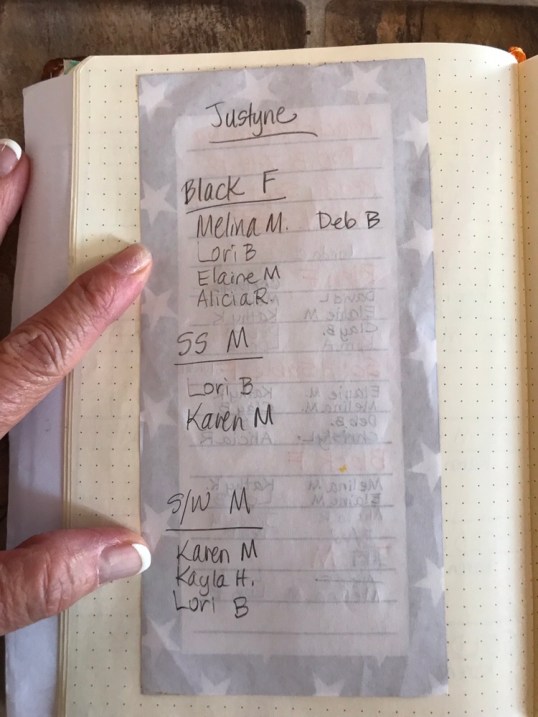 Justyne
Black F
Melina M. Deb B
Lori B
Elaine M
Alicia R.
SS M
Lori B
Karen M
S/W M
Karen M
Kayla H.
Lori B